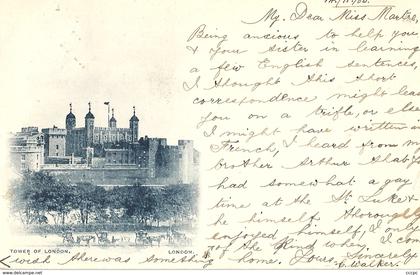 My Dear Miss Martre,
Being anxious to help you
& your sister in learning
a few English sentences,
I thought this short
correspondence might lead
you on a trifle, or else
I might have written in
French, I heard from my
brother Arthur that
had somewhat a gay
time at the St Luke
he himself thoroughly
enjoyed himself, I only
wish there was something of the kind
home. Yours Sincerely
C. Walker.
TOWER OF LONDON. LONDON.